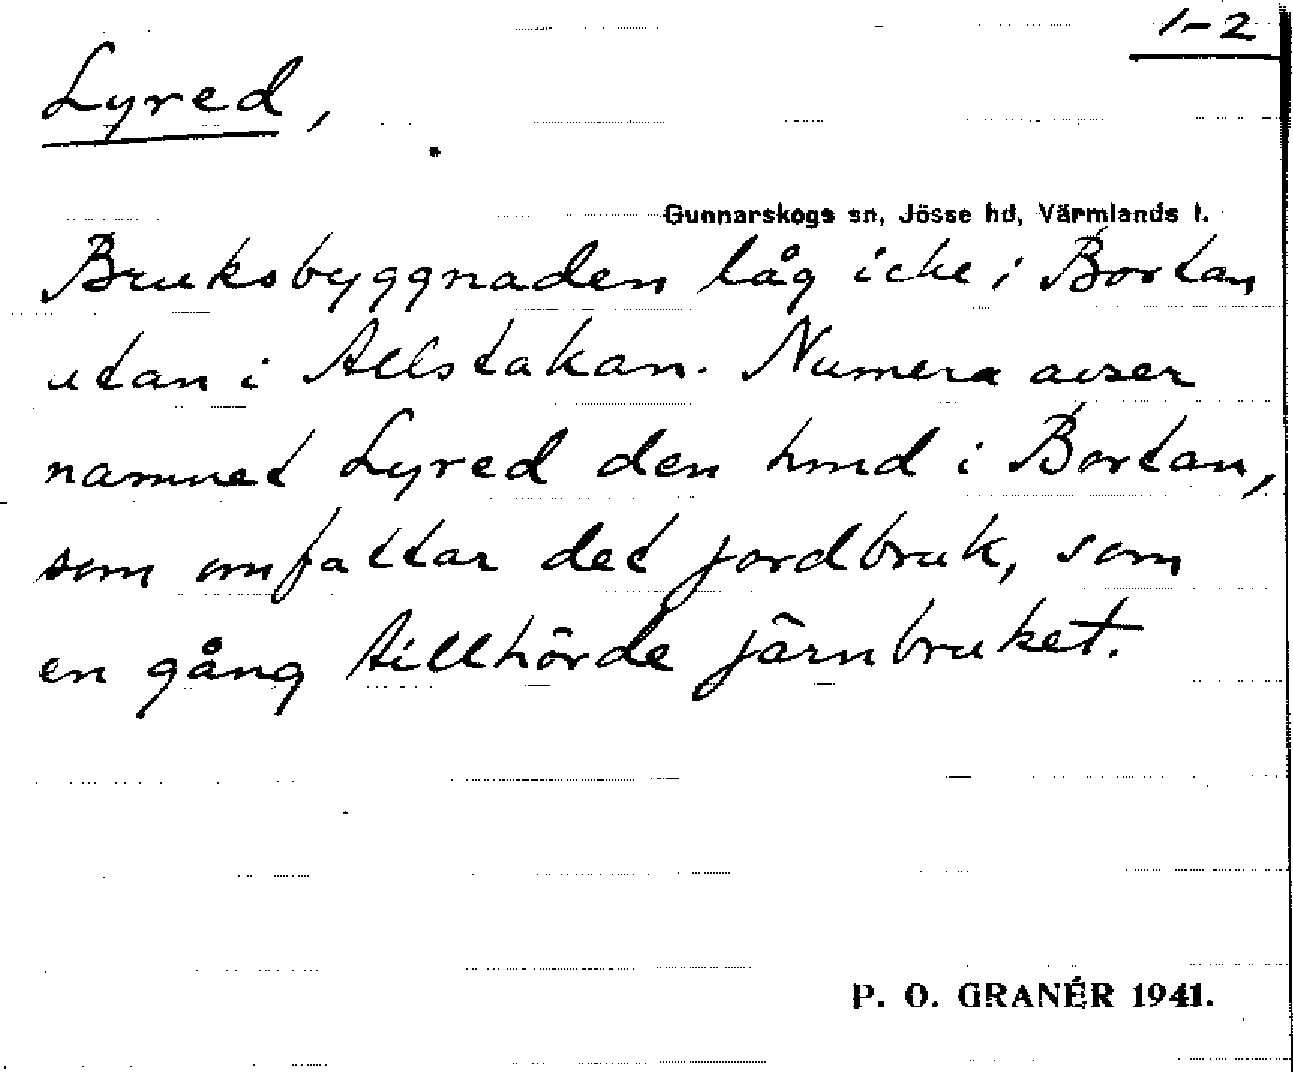 1-2
Lyred,
Gunnarskogs sn, Jösse hd, Värmlands l.
Bruksbyggnaden låg icke i Bortan
utan i Allstakan. Numera avser
namnet Lyred den hmd i Bortan,
som omfattar det jordbruk, som
en gång tillhörde järnbruket.
P. O. GRANÉR 1941.